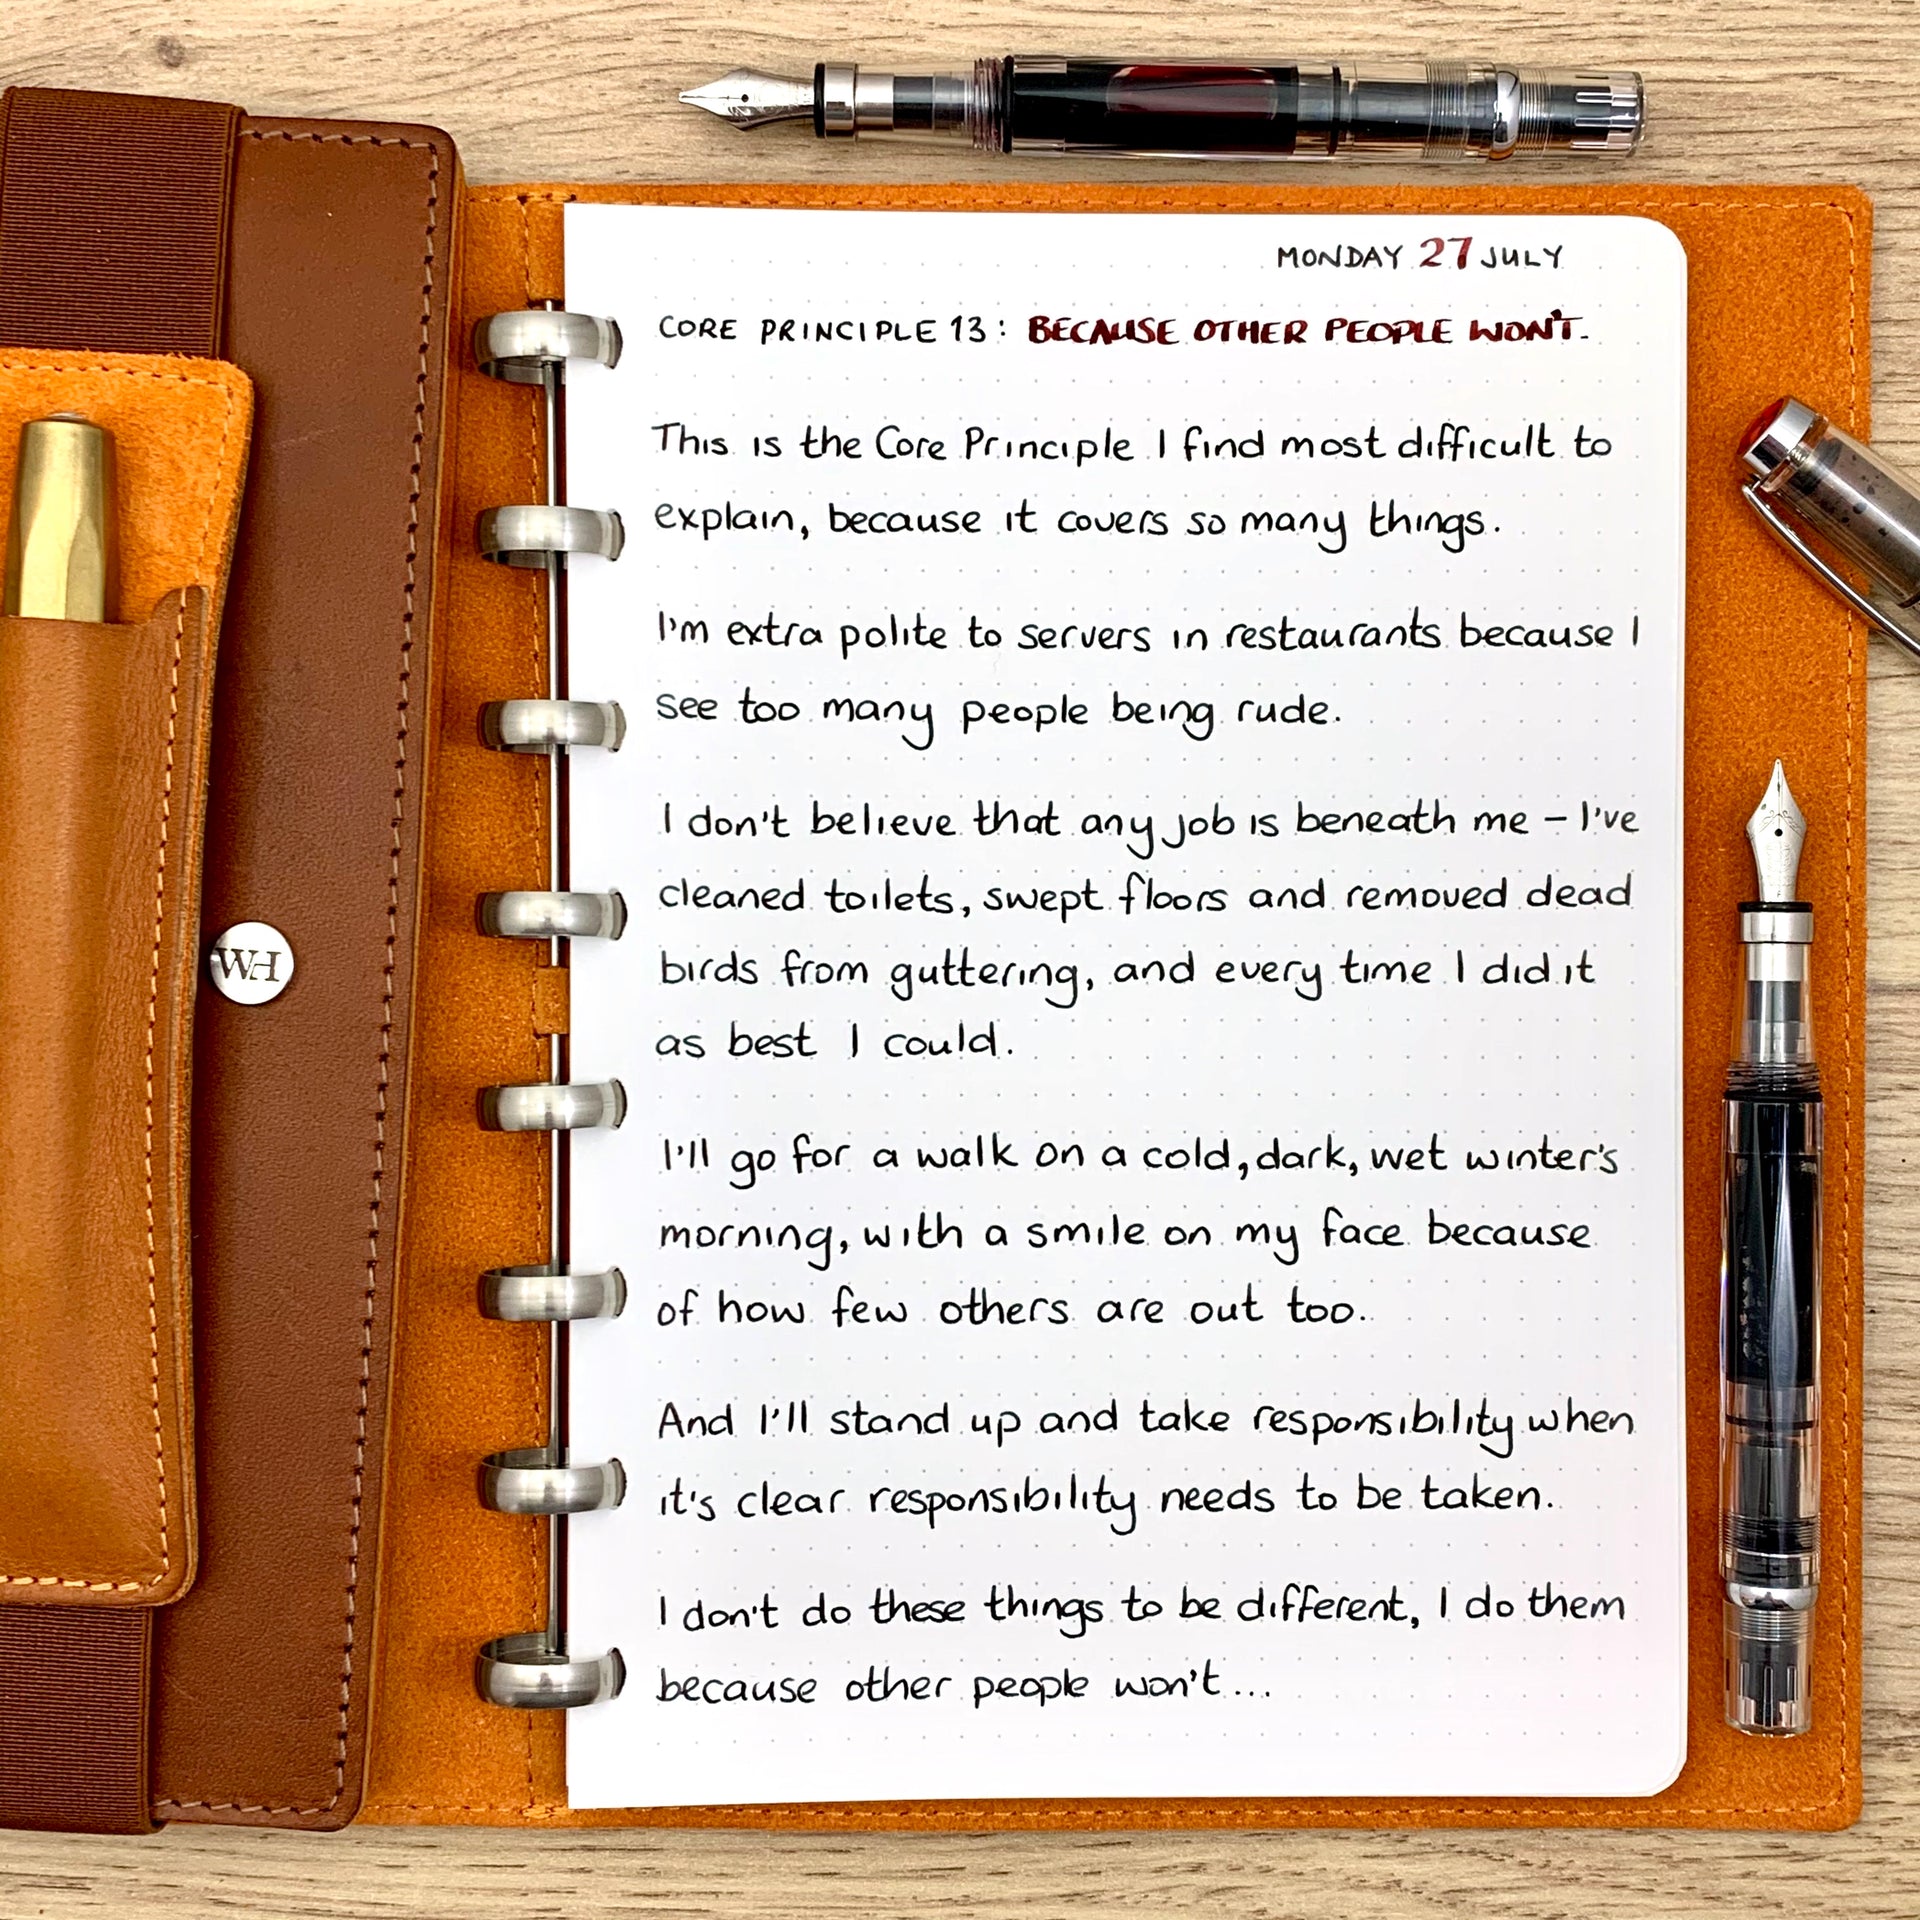 MONDAY 27 JULY
CORE PRINCIPLE 13: BECAUSE OTHER PEOPLE WON'T.
This is the Core Principle I find most difficult to
explain, because it covers so many things.
I'm extra polite to servers in restaurants because I
see too many people being rude.
I don't believe that any job is beneath me – I've
cleaned toilets, swept floors and removed dead
birds from guttering, and every time I did it
as best I could.
I'll go for a walk on a cold, dark, wet winter's
morning, with a smile on my face because
of how few others are out too.
And I'll stand up and take responsibility when
it's clear responsibility needs to be taken.
I don't do these things to be different, I do them
because other people won't...
WH